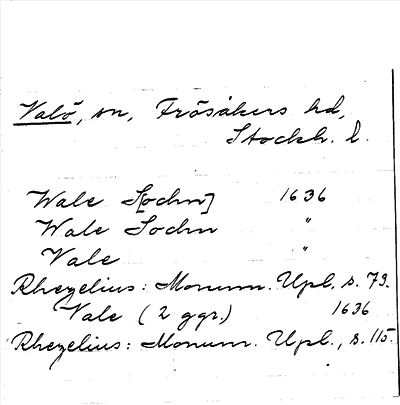 Valö, sn, Frösåkers hd,
Stockh. l.
Wale S[ochn] 1636
Wale Sochn "
Vale "
Rhezelius: Monum. Upl. s. 79.
Vale (2 ggr.) 1636
Rhezelius: Monum. Upl., s. 115.